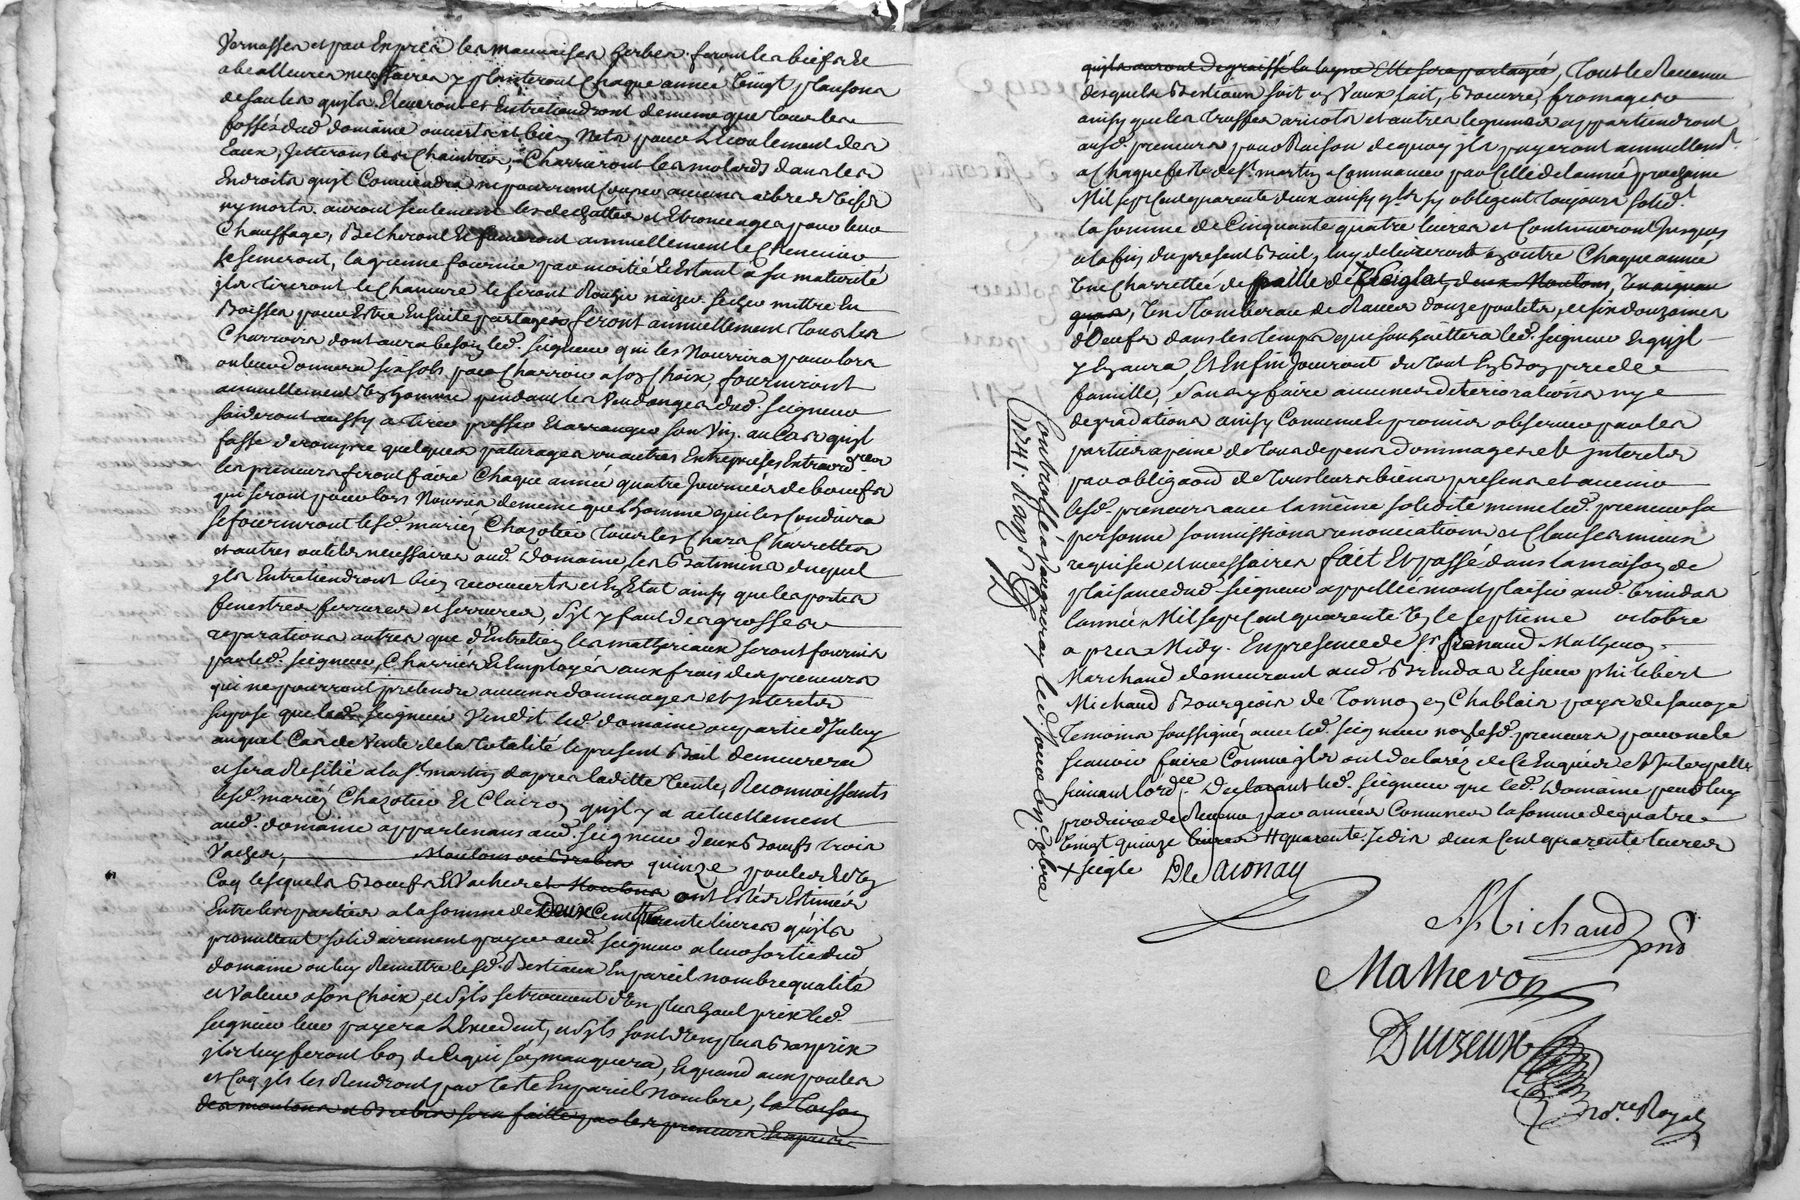 Vernasses et par Enprés les mauvaises herbes feront les biefs et
abeallieres necessaires y planteront Chaque année Vingt plansons
de saules quils Eleveront et Entretiendront de meme que tous les
fossés dud. domaine ouverts et bien Nets pour L'Ecoulement des
Eaux, Jetteront les Chaintres, Charrieront les molards dans les
Endroits quil Conviendra ne pourront Couper aucuns arbres Vifs
ny morts. auront seulement les et Etroncages pour leur
Chauffage, Becheront Et fumeront annuellement le Chenevier
le semeront, la graine fournie par moitié Et Estant a sa maturité
ils tireront le Chanvre le feront Rouir naizer secher mettre En
pour Estre Ensuite partagés feront annuellement tous les
Charrois dont aura besoin led. seigneur qui les Nourrira pour lors
ou leur donnera six sols par Charroy a son Choix, fourniront
annuellement Un homme pendant les Vendanges dud. seigneur
saideront aussy a tirer presser Et arranger son Vin. au Cas quil
fasse derompre quelques paturages ou autres Entreprises Extraord.res
les preneurs feront faire Chaque année quatre Journées de boeufs
qui seront pour lors Nourris de meme que Lhomme qui les Conduira
se fourniront lesd. mariez Chazottier tous les Chars Charrettes
et autres outils necessaires aud. domaine, les Batimens duquel
ils Entretiendront bien recouverts et En Etat ainsy que les portes
fenestres ferrures et serrures, Sil y faut des grosses
reparations autres que d'Entretien les matteriaux seront fournis
par led. seigneur, Charriés Et Employés aux frais des preneurs
qui ne pourront pretendre aucuns dommages et Interets
suposé que led. seigneur Vendit led. domaine ou partie d'Iceluy
auquel Cas de Vente de la totalité le present Bail demeurera
et sera Resilié a la St. martin d'apres laditte Vente, Reconnoissants
lesd. mariéz Chazottier Et Clairon quil y a actuellement
aud. domaine appartenans aud. seigneur deux Boeufs trois
Vaches, Moutons ou Brebis quinze poules Et Un
Coq lesquels Boeufs Et Vaches et Moutons ont Estés Estimés
Entre les parties a la somme de Deux Cent livres quils
promettent solidairement payer aud. seigneur a leur sortie dud.
domaine ou luy Remettre lesd. Bestiaux En pareil nombre qualité
et Valeur a son Choix, et Sils se trouvent d'Un plus haut prix led.
seigneur leur payera L'Excedent, et Sils sont d'Un plus Bas prix
ils luy feront bon de Ce qui s'En manquera, Et quand aux poules
et Coq ils les Rendront par teste En pareil nombre, la toison
des moutons et Brebis sera faitte par les preneurs Et apres
quils auront degraissé la layne Elle sera partagée, tout le Revenu
desquels Bestiaux soit En Vaux lait, Beurre, fromages
ainsy que les truffes aricots et autres legumes appartiendront
ausd. preneurs pour Raison de quoy ils payeront annuellemt.
a Chaque feste de St. martin a Commancer par Celle de lannée prochaine
Mil sept Cent quarante deux ainsy quils sy obligent toujours solid.t
la somme de Cinquante quatre livres et Continueront Jusques
a la fin du present Bail, luy delivreront En outre Chaque année
Une Charrettée de paille de + Seigle, deux Moutons, Un aigneau
gras, Un tombereau de Raves douze poulets, et six douzaines
d'Oeufs dans les temps que souhaittera led. seigneur Et quil
y En aura, Et Enfin Jouiront du tout En Bons pere de
famille, sans y faire aucunes deteriorations ny
degradations ainsy Convenu Et promis observer par les
parties a peine de tous depens dommages et Interets
par obligaon de tous leurs biens presens et avenir
lesd. preneurs avec la même solidité meme led. preneur sa
personne soumissions renonciations et Clauses mieux
requises et necessaires fait Et passé dans la maison de
plaisance dud. seigneur appellée mont plaisir aud. brindas
lannée Mil sept Cent quarante Un le septieme octobre
apres Midy. En presence de Sr. Renaud Mathevon
Marchand demeurant aud. Brindas Et sieur philibert
Michaud Bourgeois de Tonnon en Chablais pays de savoye
temoins soussignés avec led. seigneur non lesd. preneurs pour ne le
scavoir faire Comme ils ont declaréz de Ce Enquis et Interpellés
suivant lord.ce Declarant led. seigneur que led. Domaine peut luy
produire de Revenu par années Communes la somme de quatre
Vingt quinze livres # quarante. Je dis deux Cent quarante livres
+ seigle DeSaconay
Michaud pns
Mathevon
Duizeux
No.re Royal
Controllé a Vaugneray led. Jour
1741. Recu